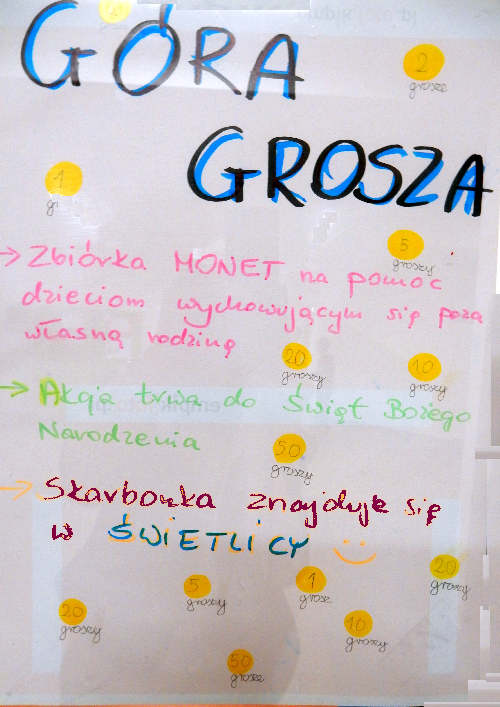 GÓRA
2
grosze
GROSZA
1
gr
5
groszy
→ Zbiórka MONET na pomoc
dzieciom wychowującym się poza
własną rodziną
20
groszy
10
groszy
→ Akcja trwa do Świąt Bożego
Narodzenia
50
groszy
→ Skarbonka znajduje się
w ŚWIETLICY
20
groszy
5
groszy
1
grosz
20
groszy
10
groszy
50
grosze